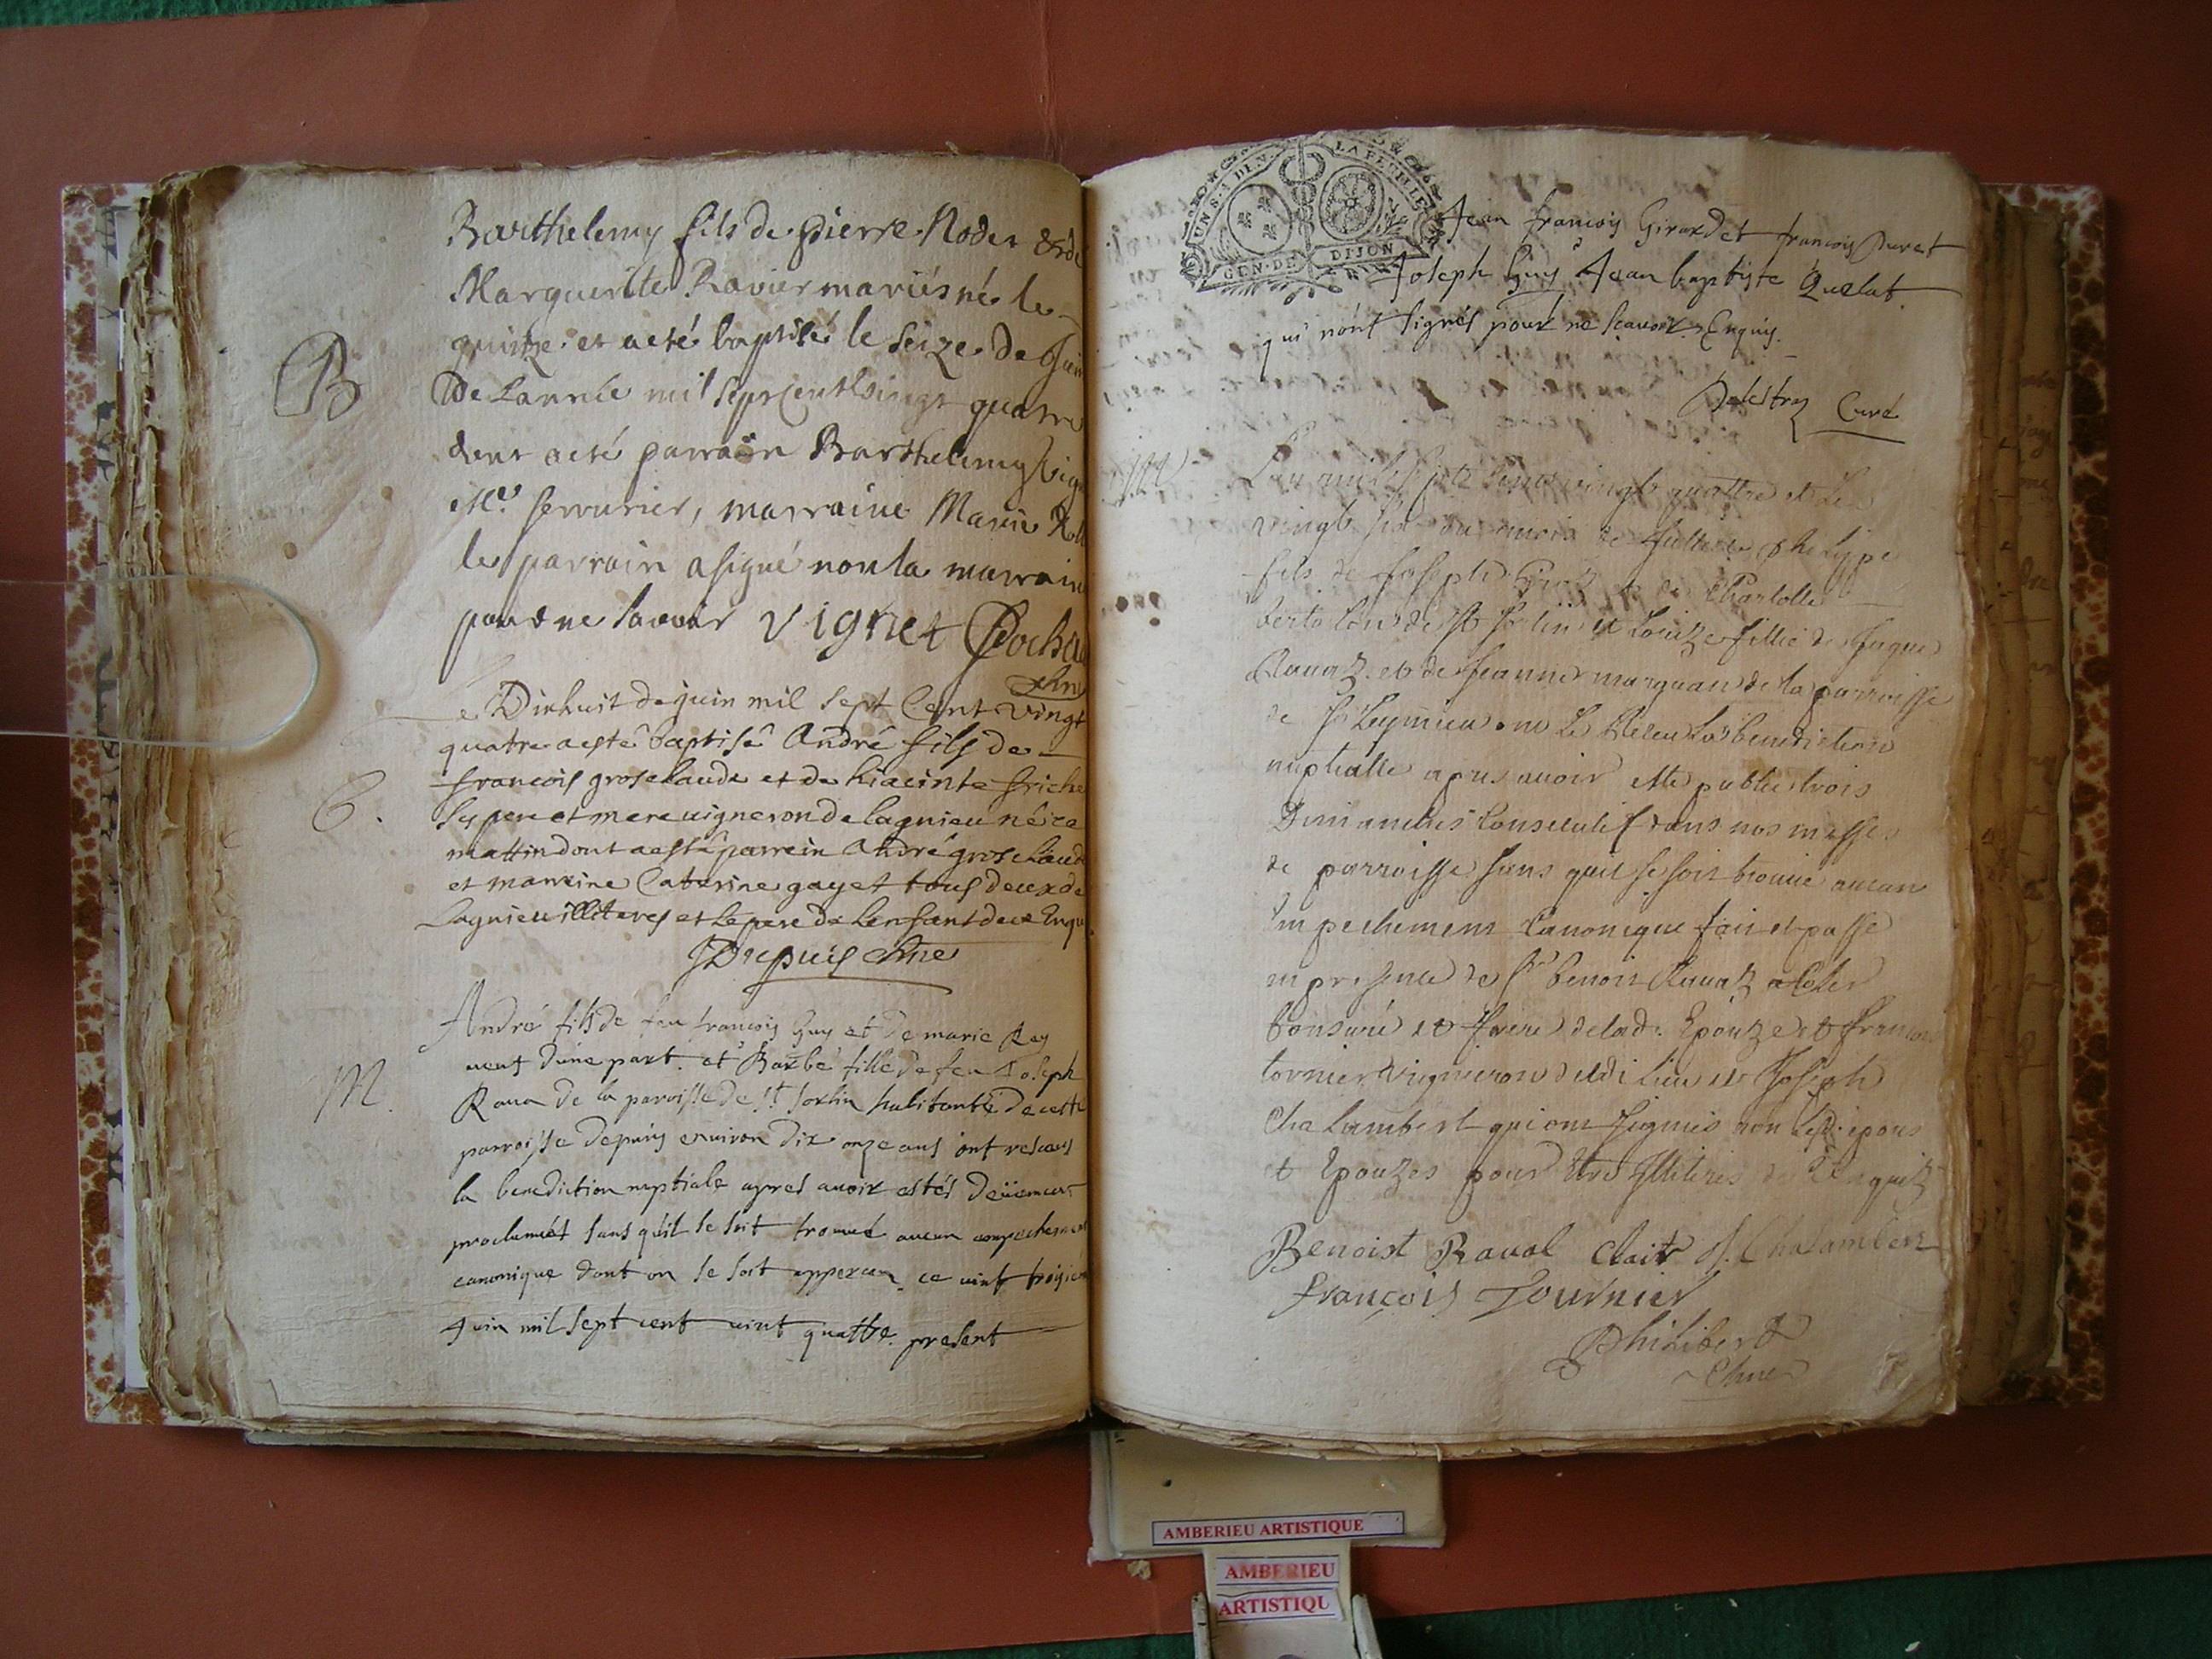 Barthelemy fils de pierre Rodet & de
Margueritte Ravier mariés né le
quinze et a eté baptisé le seize de Juin
De Lannée mil sept Cent vingt quatre
dont a eté parrain Barthelemy
Me. serrurier, marraine Marie
le parrain a signé non la marraine
pour ne savoir Vignet
B
e Dixhuit de juin mil sept Cent vingt
quatre a esté baptisé André fils de
francois groselaude et de hiacinte
ses pere et mere vigneron de lagnieu né ce
mattin dont a esté parrein André groselaude
et marreine Caterine gayet tous deux de
Lagnieu illiteres et le pere de Lenfant de ce Enqu
Dupuis
B.
André fils de feu francois Guy et de marie Rey
d'une part. et Barbe fille de feu Joseph
Rava de la paroisse de St. Sorlin habitante de ceste
parroisse depuis environ dix onze ans ont receus
la benediction nuptiale apres avoir estés deüement
proclamés sans qu'il se soit trouvé aucun empechement
canonique dont on se soit apperceu ce vint troisie
Juin mil sept cent vint quattre present
M.
UN S. 4 DE.V. LA FEUILLE
GEN. DE DIJON
Jean francois Girardet francois Duret
Joseph Guy Jean baptiste Quelat
qui n'ont signés pour ne scavoir Enquis.
Delestraz Curé
M
L'an mil sept cent vingt quattre et Le
vingt six du mois de Phelippe
fils de Joseph et de Charlotte
de St Sorlin et Louize fillie de Jaque
Ravaz et de Jeanne marguan de la parroisse
de ont Receu La benediction
nuptialle apres avoir esté publié trois
Dimanches Consecutif dans nos messes
de parroisse sans quil se soit trouvé aucun
Empechement Canonique fait et passé
en presence de Sr benoit Ravaz Cler
tonsuré et frere de lad. Epouze et francois
tornier vigneron dudi Lieu et Joseph
Chalambert qui ont signés non Lesd. epous
et Epouzes pour Etre Illiteres de ce enquis
Benoist Raval Clair J. Chalambert
françois Tournier
Philibert